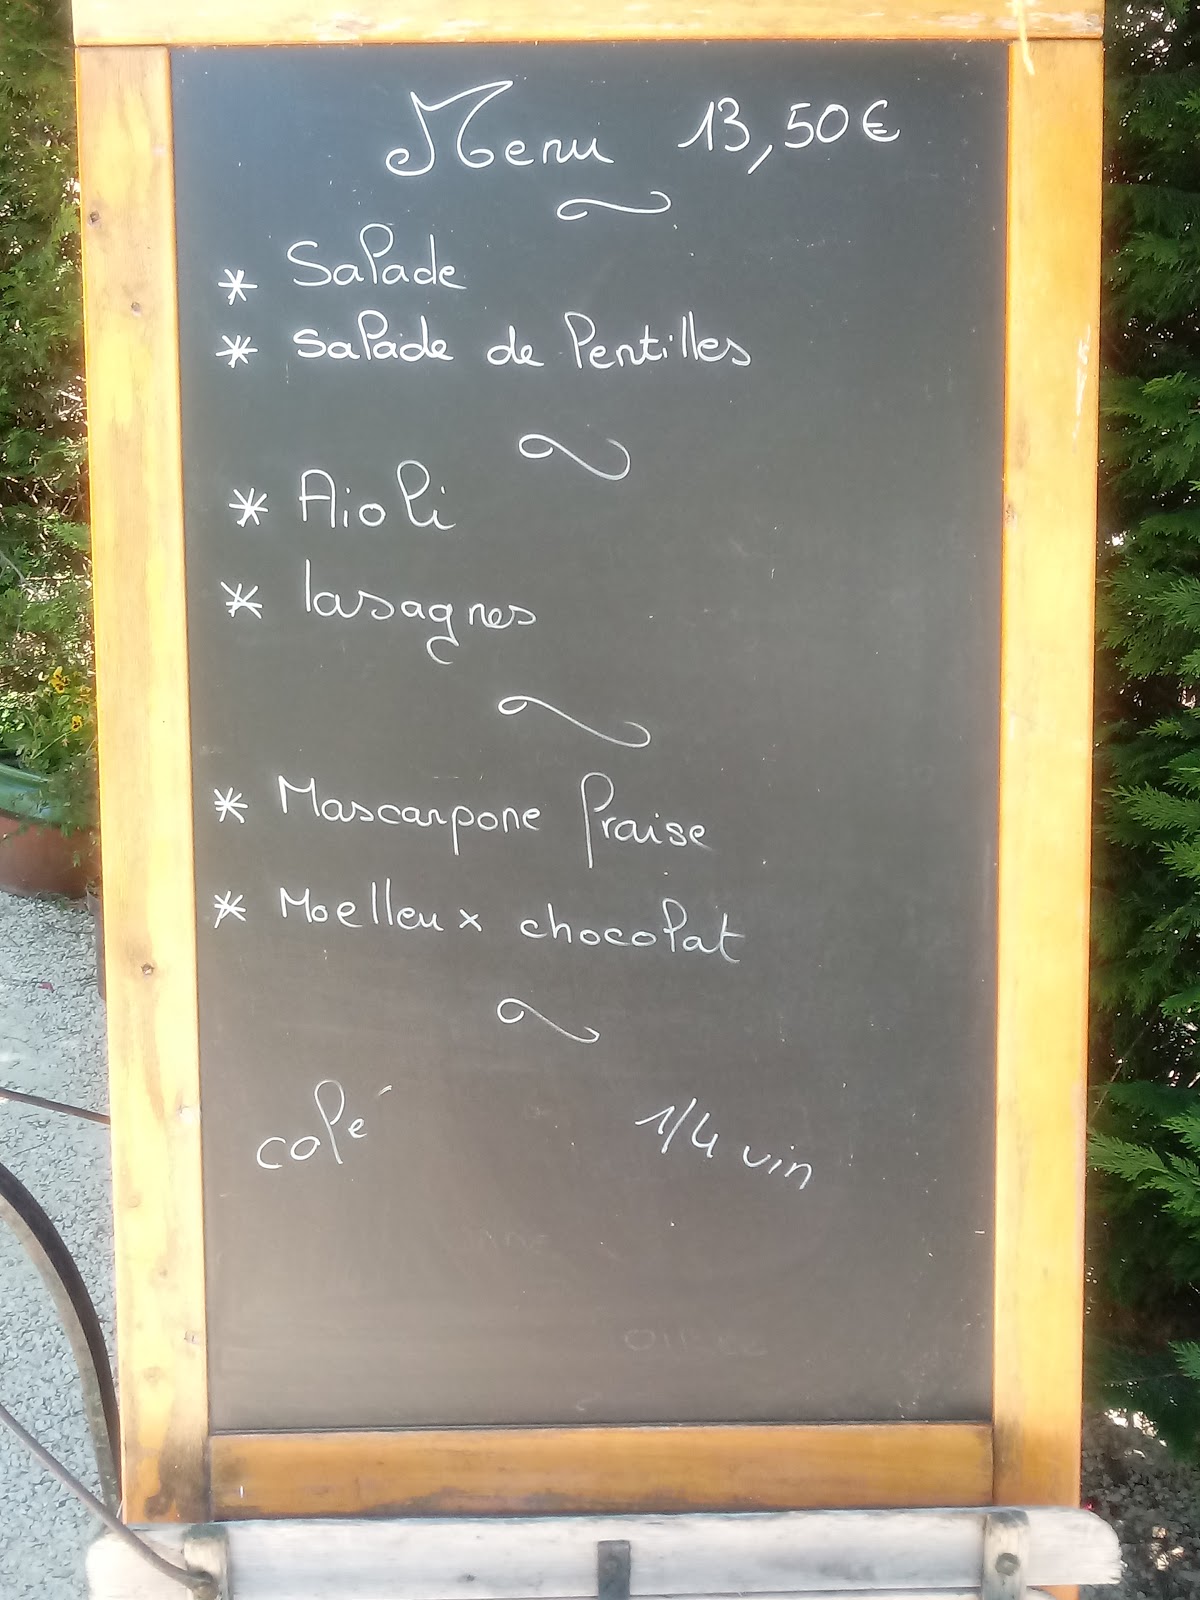 Menu 13,50€
* Salade
* salade de lentilles
* Aioli
* lasagnes
* Mascarpone fraise
* Moelleux chocolat
café 1/4 vin